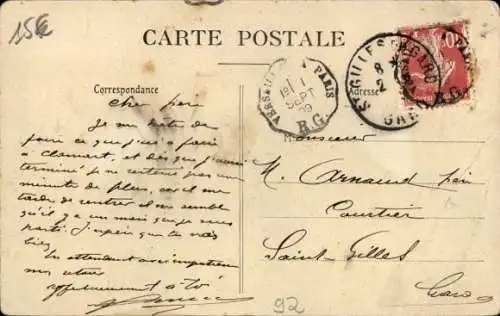 15€
CARTE POSTALE
Correspondance
Adresse
VERSAILLES A PARIS
1 SEPT 09
R.G.
ST GILLES-DU-GARD
8
2
GARD
10
Cher père
Je me hâte de
faire ce que j'ai à faire
à Clamart, et dès que j'aurai
terminé je ne resterai pas une
minute de plus, car il me
tarde de rentrer il me semble
qu'il y a un mois que je suis
parti. J'espère que tu vas
bien
En attendant avec impatience
mon retour
affectueusement à toi
Monsieur
M. Arnaud père
Courtier
Saint-Gilles
Gard
92